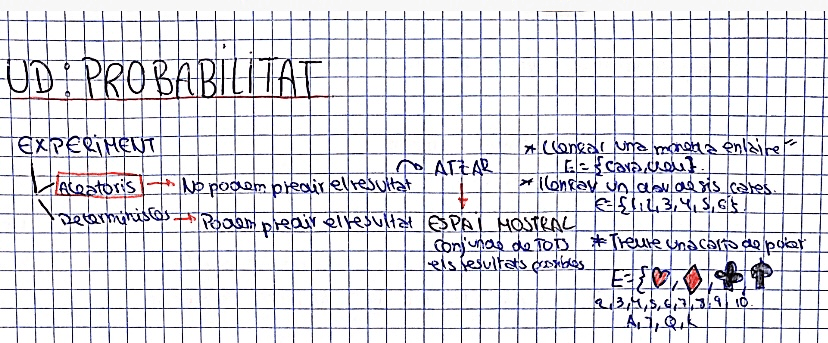 UD: PROBABILITAT
EXPERIMENT
Aleatoris → No podem predir el resultat
Deterministes → Podem predir el resultat
ATZAR
ESPAI MOSTRAL
conjunt de TOTS
els resultats possibles
* Llençar una moneda enlaire
E = {cara, creu}.
* llençar un dau de sis cares.
E = {1, 2, 3, 4, 5, 6}.
* Treure una carta de poker
E = {♥, ♦, ♣, ♠
2, 3, 4, 5, 6, 7, 8, 9, 10.
A, J, Q, K